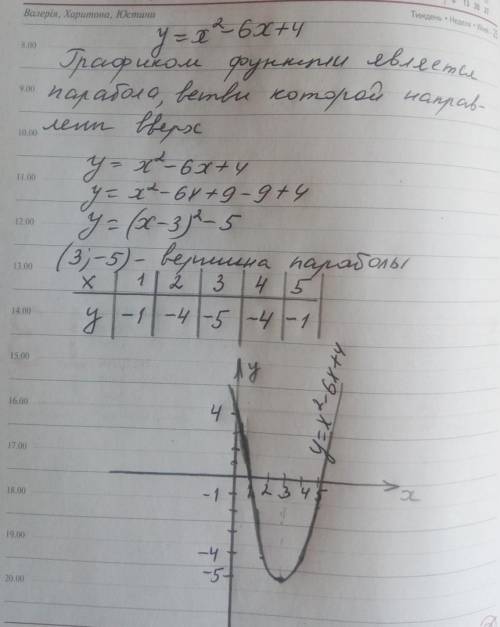 Валерія, Харитона, Юстина
Тиждень • Неделя •
y = x² - 6x + 4
8.00
Графиком функции является
9.00
парабола, ветви которой направ-
лены вверх
10.00
y = x² - 6x + 4
11.00
y = x² - 6x + 9 - 9 + 4
12.00
y = (x - 3)² - 5
(3; -5) - вершина параболы
13.00
x 1 2 3 4 5
14.00
y -1 -4 -5 -4 -1
15.00
y
y = x² - 6x + 4
16.00
4
17.00
18.00
-1 1 2 3 4 5 x
19.00
-4
-5
20.00